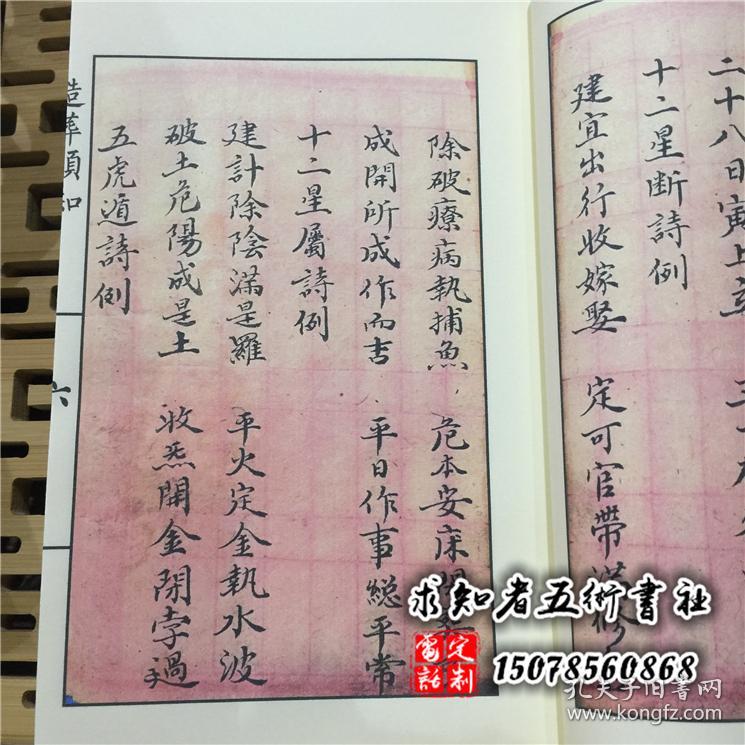 二十八日寅上
十二星断詩例
建宜出行收嫁娶 定可官帶滿修
除破療病執捕魚 危本安床
成開所成作而吉 平日作事總平常
十二星屬詩例
建計除陰滿是羅 平火定金執水波
破土危陽成是土 收炁開金閉孛過
五虎遁詩例
造葬須知
六
求知者五術書社
電話定制
15078560868
孔夫子旧書网
www.kongfz.com